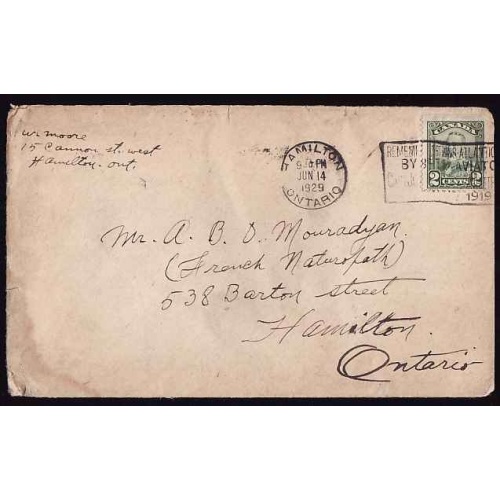 wr moore
15 Cannon st. west
Hamilton - ont.
HAMILTON
PM
JUN 14
1929
ONTARIO
REMEM
BY
1919
CANADA
2 CENTS 2
Mr. A. B. D. Mouradyan.
(French Naturopath)
538 Barton street
Hamilton.
Ontario